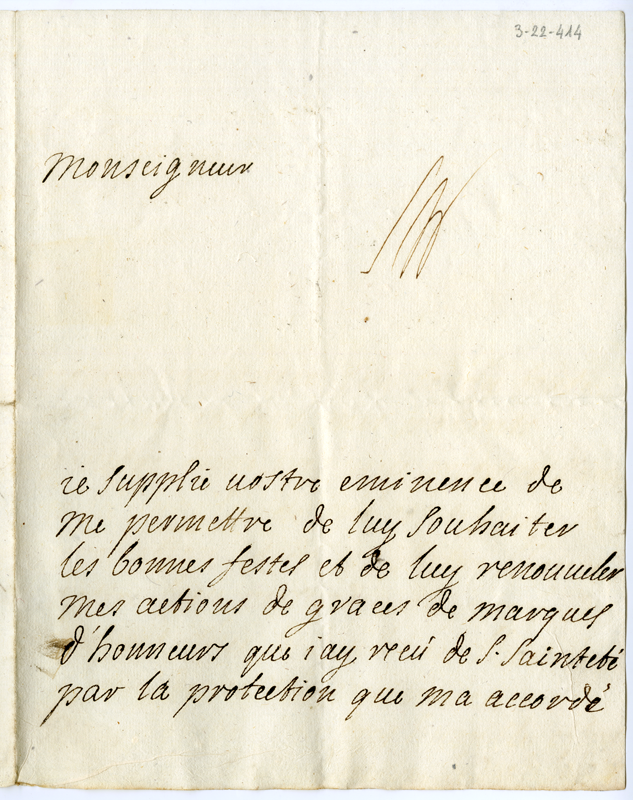 3-22-414
Monseigneur
ie supplie vostre eminence de
me permettre de luy souhaiter
les bonnes festes et de luy renouueler
mes actions de graces de marques
d'honneurs que iay recú de S. Sainteté
par la protection que ma accordé